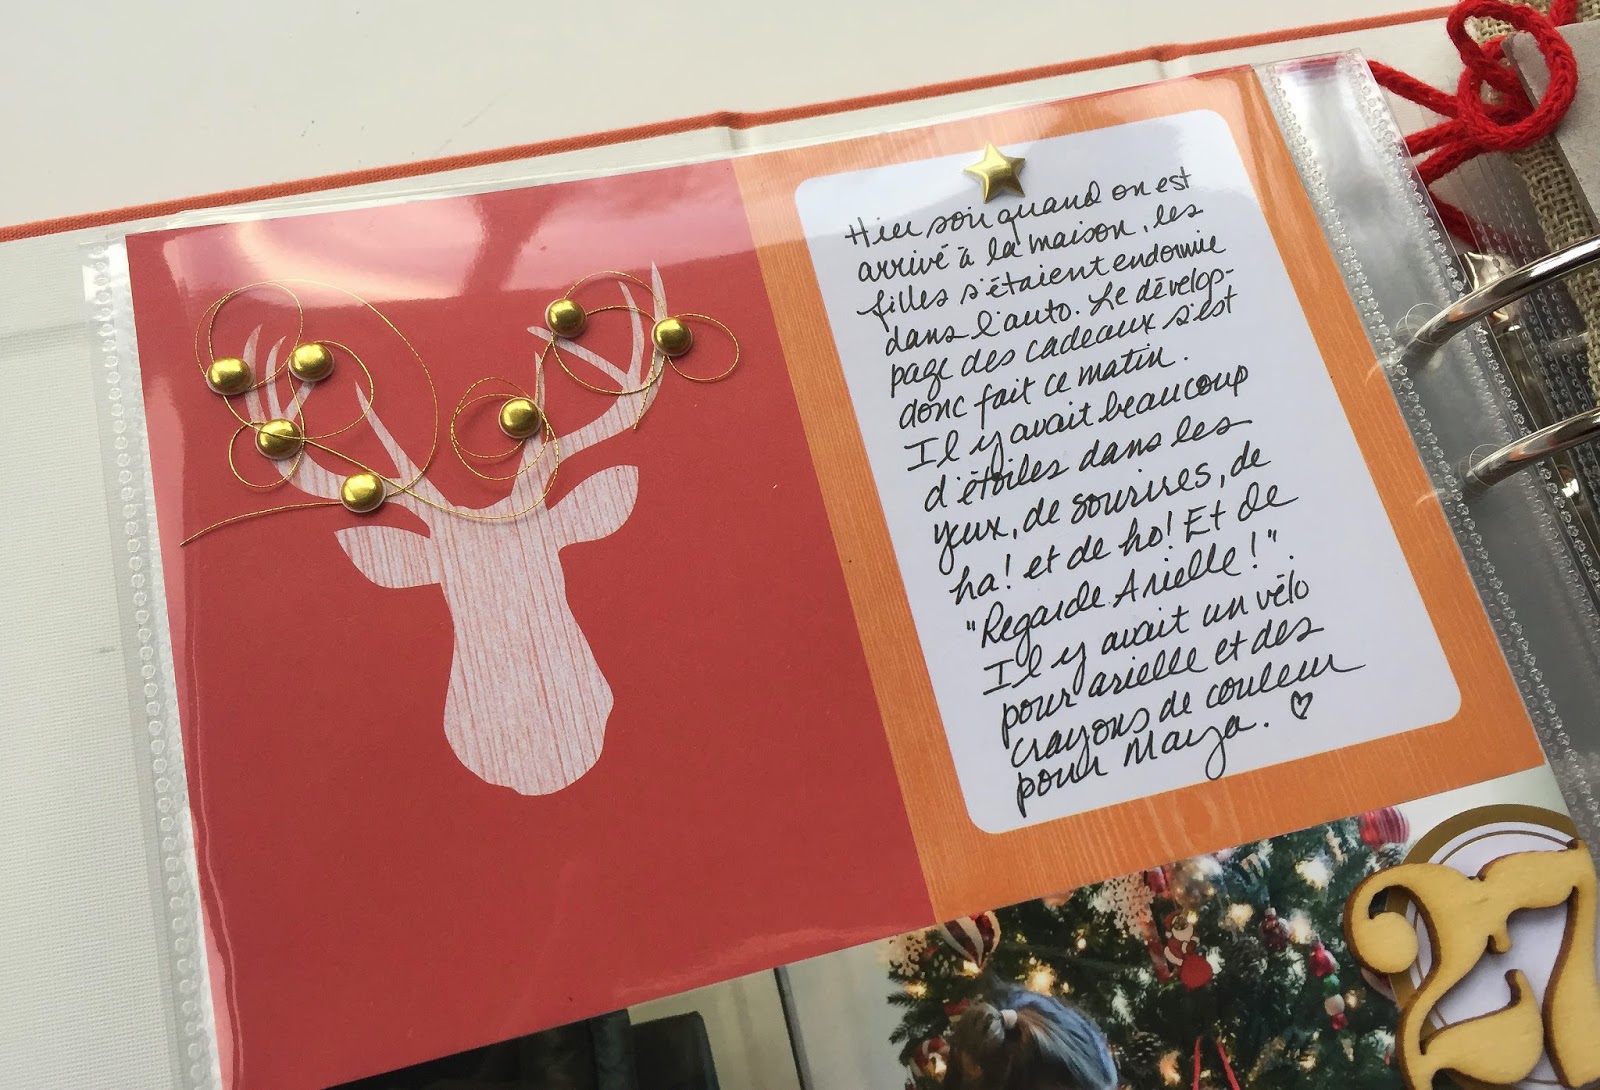 Hier soir quand on est
arrivé à la maison, les
filles s'étaient endormie
dans l'auto. Le dévelop-
page des cadeaux s'est
donc fait ce matin.
Il y avait beaucoup
d'étoiles dans les
yeux, de sourires, de
ha! et de ho! Et de
"Regarde Arielle!".
Il y avait un vélo
pour arielle et des
crayons de couleur
pour Maya. ♡
27